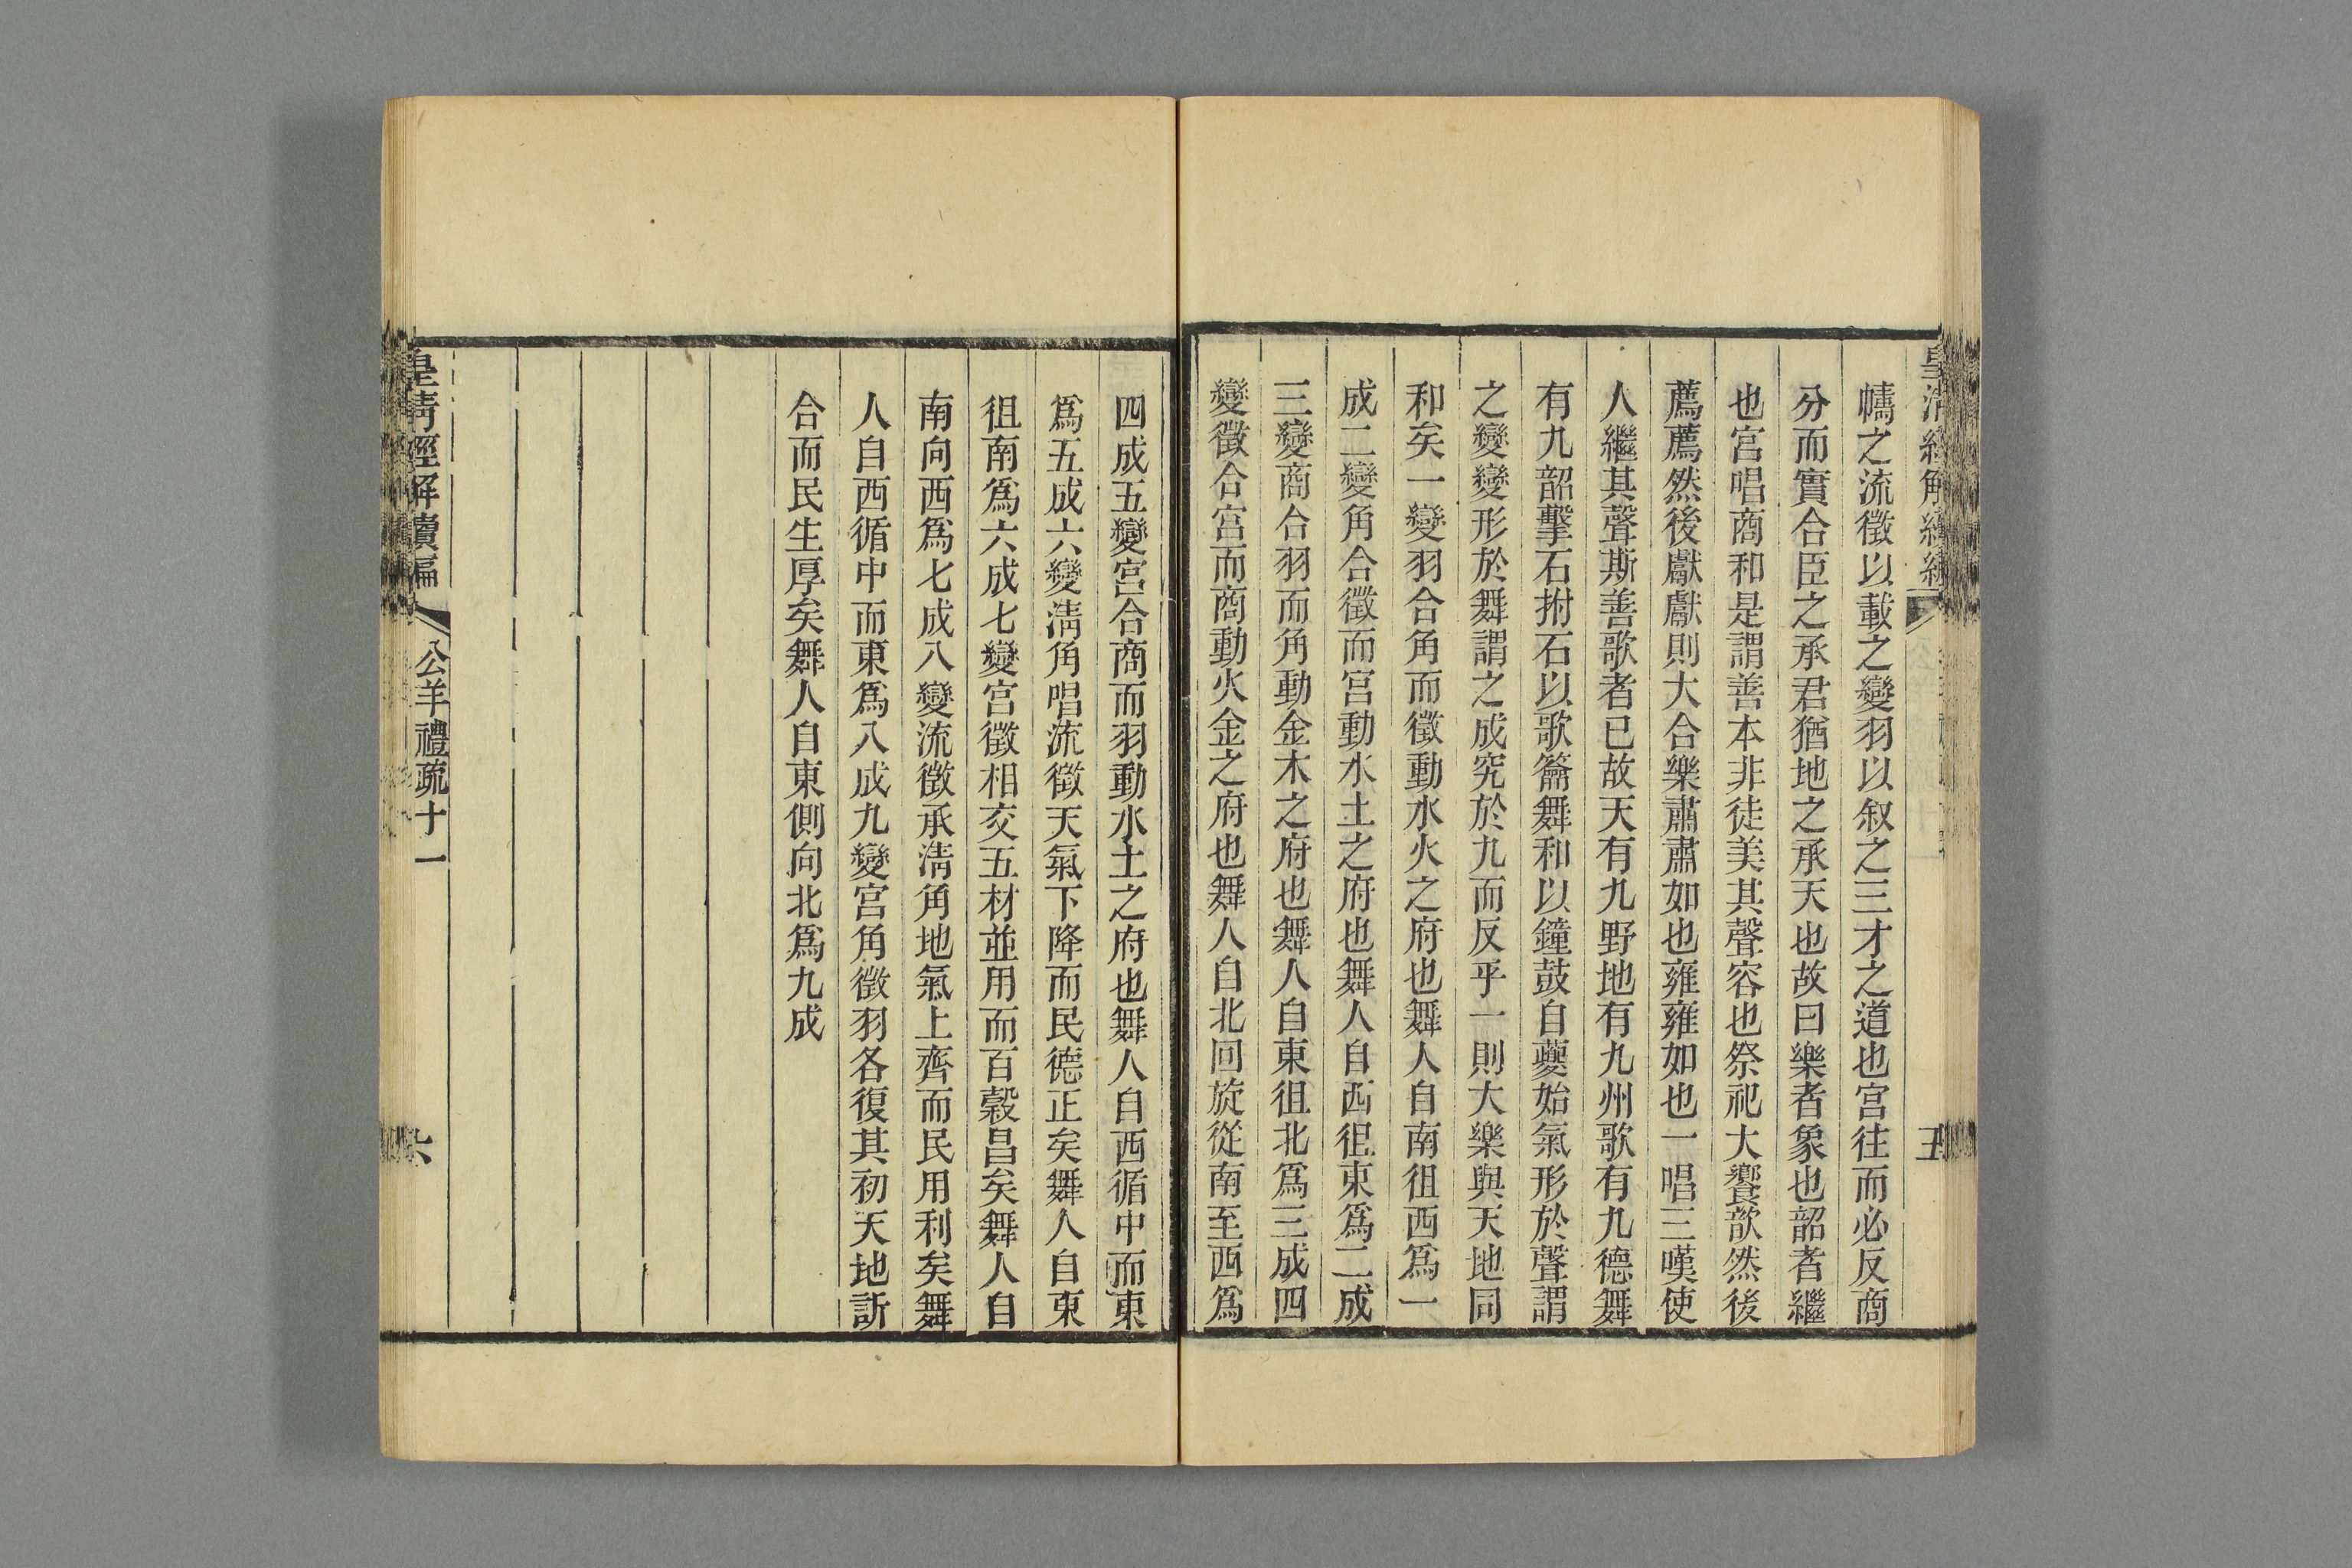 幬之流徵以載之變羽以叙之三才之道也宮往而必反商
分而實合臣之承君猶地之承天也故曰樂者象也韶者繼
也宮唱商和是謂善本非徒美其聲容也祭祀大饗歆然後
薦薦然後獻獻則大合樂肅肅如也雍雍如也一唱三嘆使
人繼其聲斯善歌者已故天有九野地有九州歌有九德舞
有九韶擊石拊石以歌籥舞和以鐘鼓自夔始氣形於聲謂
之變變形於舞謂之成究於九而反乎一則大樂與天地同
和矣一變羽合角而徵動水火之府也舞人自南徂西爲一
成二變角合徵而宮動水土之府也舞人自西徂東爲二成
三變商合羽而角動金木之府也舞人自東徂北爲三成四
變徵合宮而商動火金之府也舞人自北回旋從南至西爲
四成五變宮合商而羽動水土之府也舞人自西循中而東
爲五成六變淸角唱流徵天氣下降而民德正矣舞人自東
徂南爲六成七變宮徵相交五材並用而百穀昌矣舞人自
南向西爲七成八變流徵承淸角地氣上齊而民用利矣舞
人自西循中而東爲八成九變宮角徵羽各復其初天地訢
合而民生厚矣舞人自東側向北爲九成
皇淸經解續編
公羊禮疏十一
六
皇淸經解續編
五